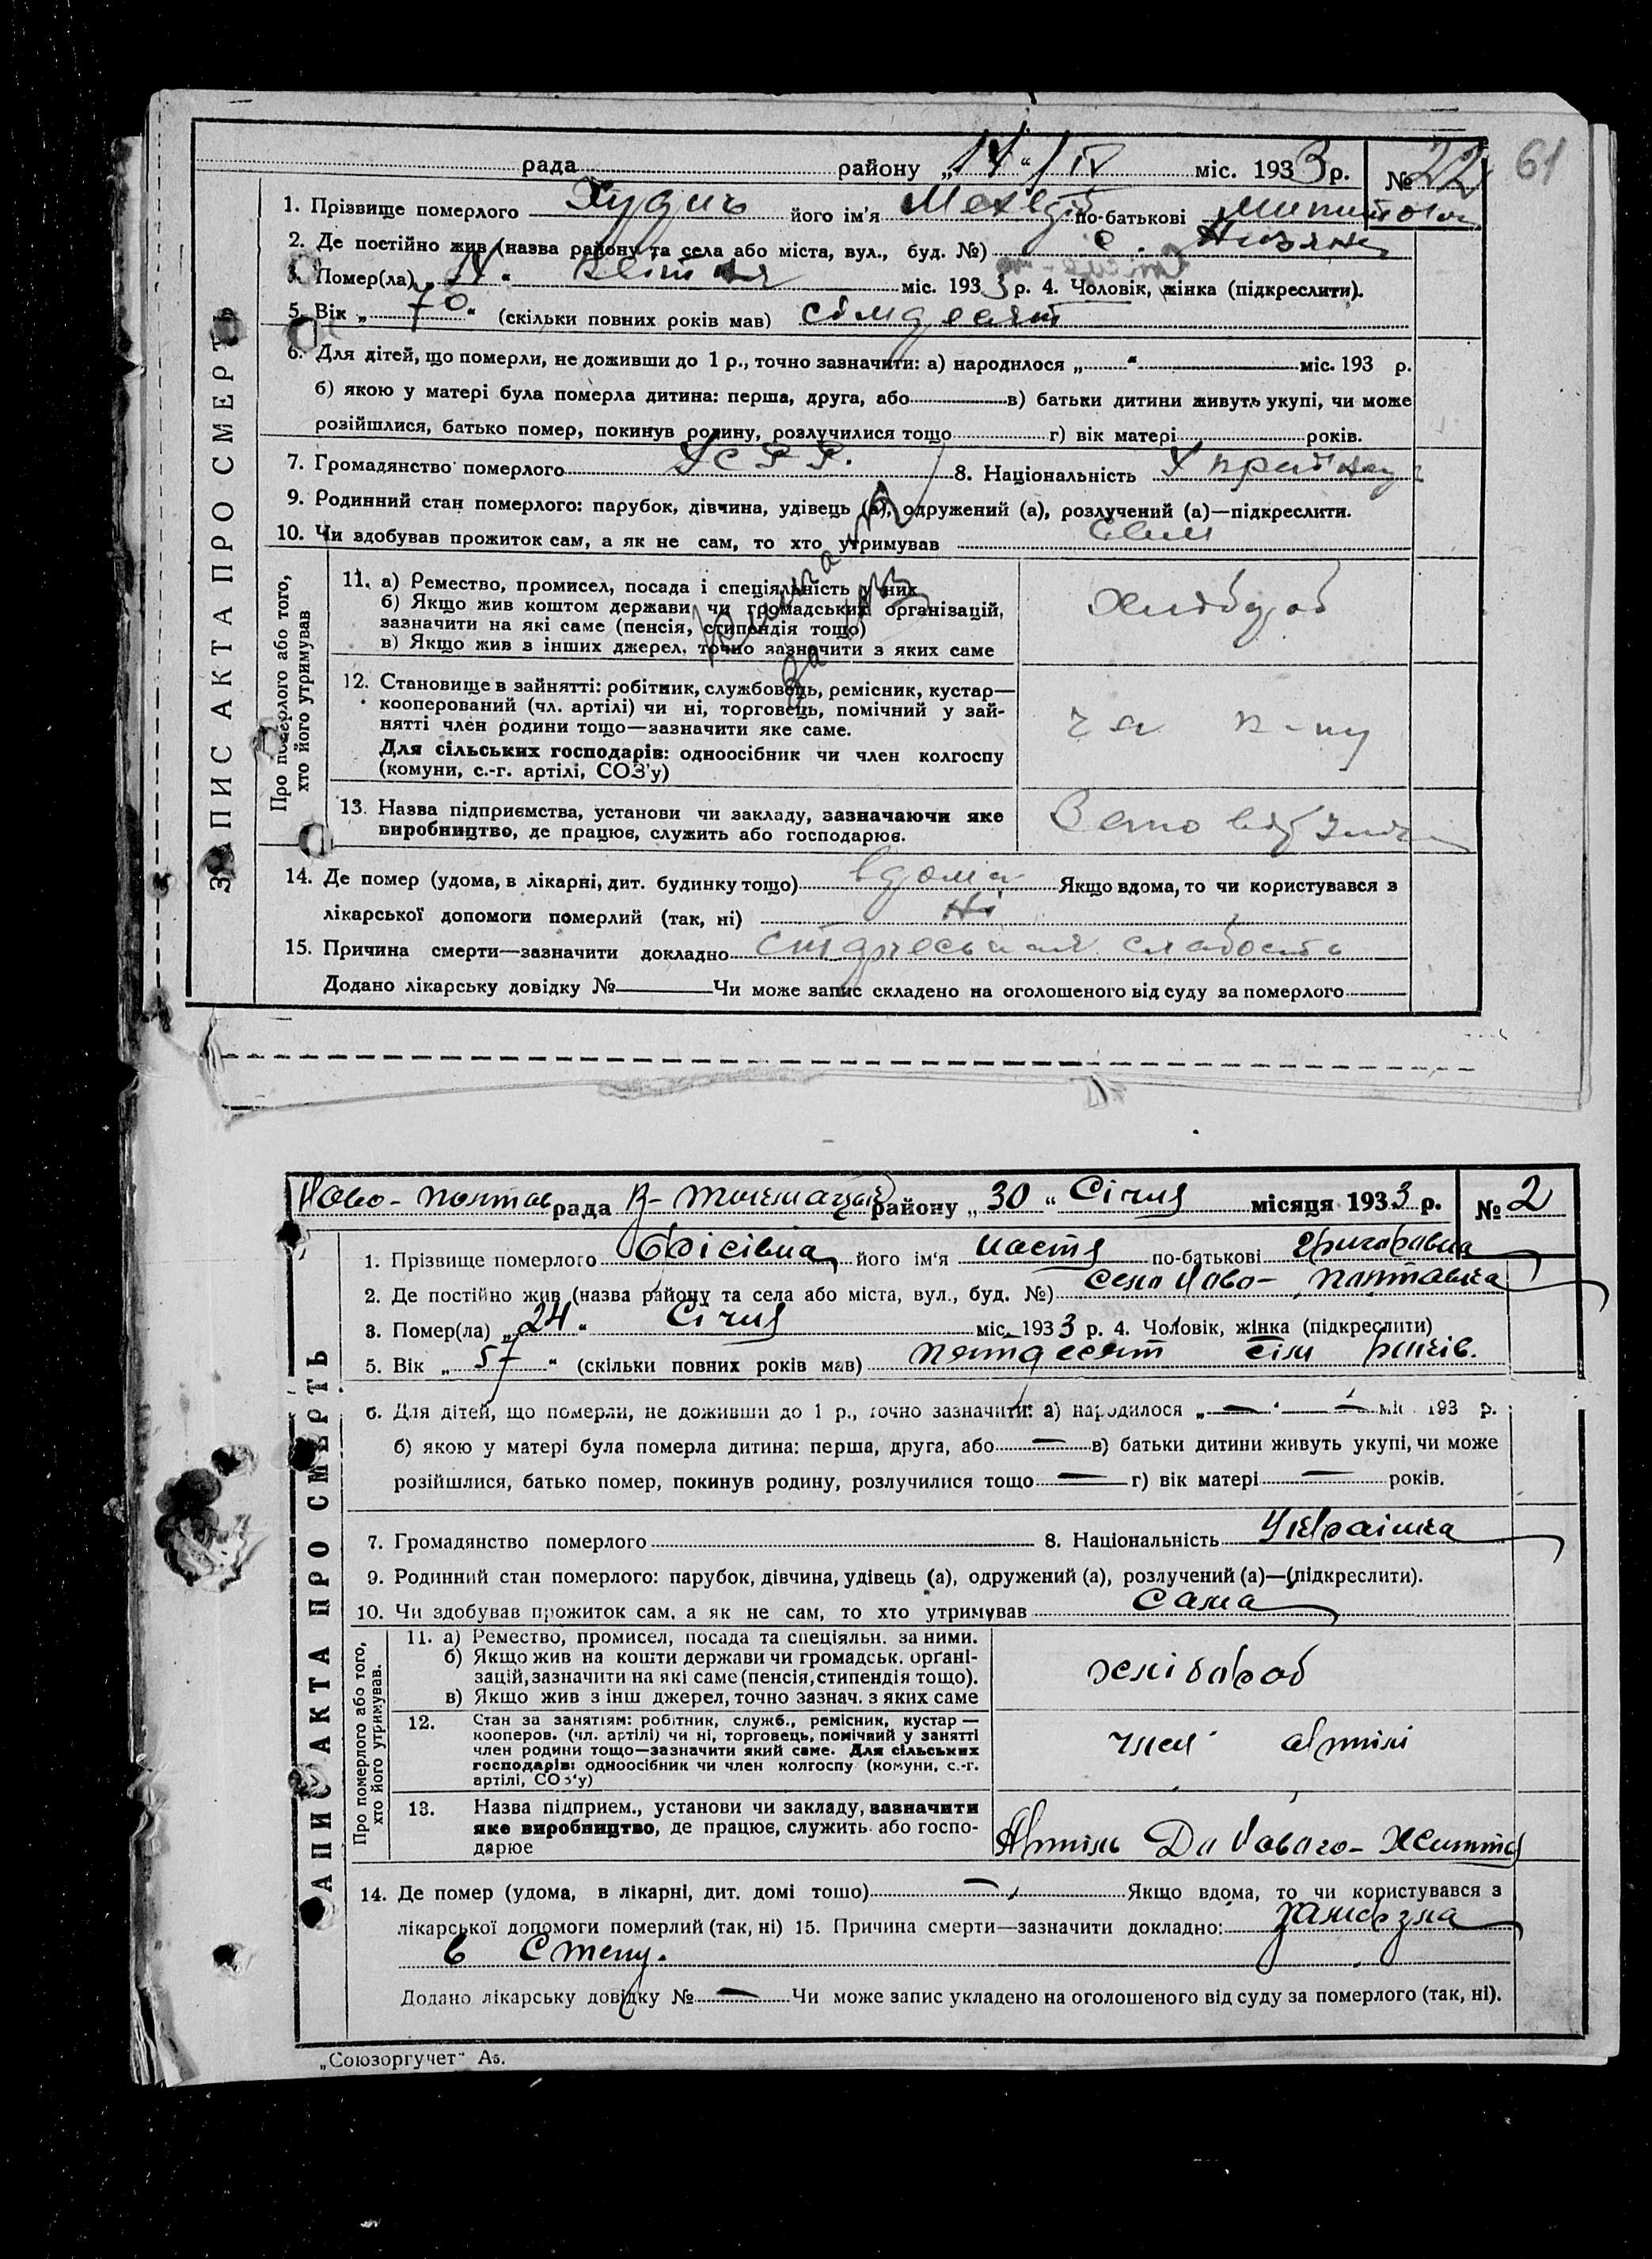 61
рада району „14“ IV міс. 1933 р. № 22
1. Прізвище померлого його ім'я по-батькові
2. Де постійно жив (назва району та села або міста, вул., буд. №) с.
3. Помер(ла) міс. 1933 р. 4. Чоловік, жінка (підкреслити).
5. Вік „70“ (скільки повних років мав) сімдесят
6. Для дітей, що померли, не доживши до 1 р., точно зазначити: а) народилося „ “ міс. 193 р.
б) якою у матері була померла дитина: перша, друга, або в) батьки дитини живуть укупі, чи може
розійшлися, батько помер, покинув родину, розлучилися тощо г) вік матері років.
7. Громадянство померлого УСРР. 8. Національність
9. Родинний стан померлого: парубок, дівчина, удівець (а), одружений (а), розлучений (а)—підкреслити.
10. Чи здобував прожиток сам, а як не сам, то хто утримував сам
ЗАПИС АКТА ПРО СМЕРТЬ
Про померлого або того, хто його утримував
11. а) Ремество, промисел, посада і спеціяльність у них
б) Якщо жив коштом держави чи громадських організацій,
зазначити на які саме (пенсія, стипендія тощо)
в) Якщо жив з інших джерел, точно зазначити з яких саме
12. Становище в зайнятті: робітник, службовець, ремісник, кустар—
кооперований (чл. артілі) чи ні, торговець, помічний у зай-
нятті член родини тощо—зазначити яке саме.
Для сільських господарів: одноосібник чи член колгоспу
(комуни, с.-г. артілі, СОЗ'у)
13. Назва підприємства, установи чи закладу, зазначаючи яке
виробництво, де працює, служить або господарює.
14. Де помер (удома, в лікарні, дит. будинку тощо) вдома Якщо вдома, то чи користувався з
лікарської допомоги померлий (так, ні) ні
15. Причина смерти—зазначити докладно слабость
Додано лікарську довідку № Чи може запис складено на оголошеного від суду за померлого
Ново-Полтав рада В-Токмацьк району „30“ Січня місяця 1933 р. № 2
1. Прізвище померлого його ім'я Настя по-батькові Григоравна
2. Де постійно жив (назва району та села або міста, вул., буд. №) село Ново-Полтавка
3. Помер(ла) „24“ Січня міс. 1933 р. 4. Чоловік, жінка (підкреслити)
5. Вік „57“ (скільки повних років мав) пятдесят сім років.
6. Для дітей, що померли, не доживши до 1 р., точно зазначити: а) народилося „—“ — міс. 193 р.
б) якою у матері була померла дитина: перша, друга, або — в) батьки дитини живуть укупі, чи може
розійшлися, батько помер, покинув родину, розлучилися тощо — г) вік матері — років.
7. Громадянство померлого 8. Національність Українка
9. Родинний стан померлого: парубок, дівчина, удівець (а), одружений (а), розлучений (а)—(підкреслити).
10. Чи здобував прожиток сам, а як не сам, то хто утримував Сама
ЗАПИС АКТА ПРО СМЕРТЬ
Про померлого або того, хто його утримував.
11. а) Ремество, промисел, посада та спеціяльн. за ними.
б) Якщо жив на кошти держави чи громадськ. органі-
зацій, зазначити на які саме (пенсія, стипендія тощо).
в) Якщо жив з інш джерел, точно зазнач. з яких саме
хлібороб
12. Стан за занятіям: робітник, служб., ремісник, кустар—
кооперов. (чл. артілі) чи ні, торговець, помічний у занятті
член родини тощо—зазначити який саме. Для сільських
господарів: одноосібник чи член колгоспу (комуни, с.-г.
артілі, СОЗ'у)
член артілі
13. Назва підприєм., установи чи закладу, зазначити
яке виробництво, де працює, служить або госпо-
дарює
Артіль До Нового-Життя
14. Де помер (удома, в лікарні, дит. домі тошо) — Якщо вдома, то чи користувався з
лікарської допомоги померлий (так, ні) 15. Причина смерти—зазначити докладно: замерзла
в степу.
Додано лікарську довідку № — Чи може запис укладено на оголошеного від суду за померлого (так, ні).
„Союзоргучет“ А5.